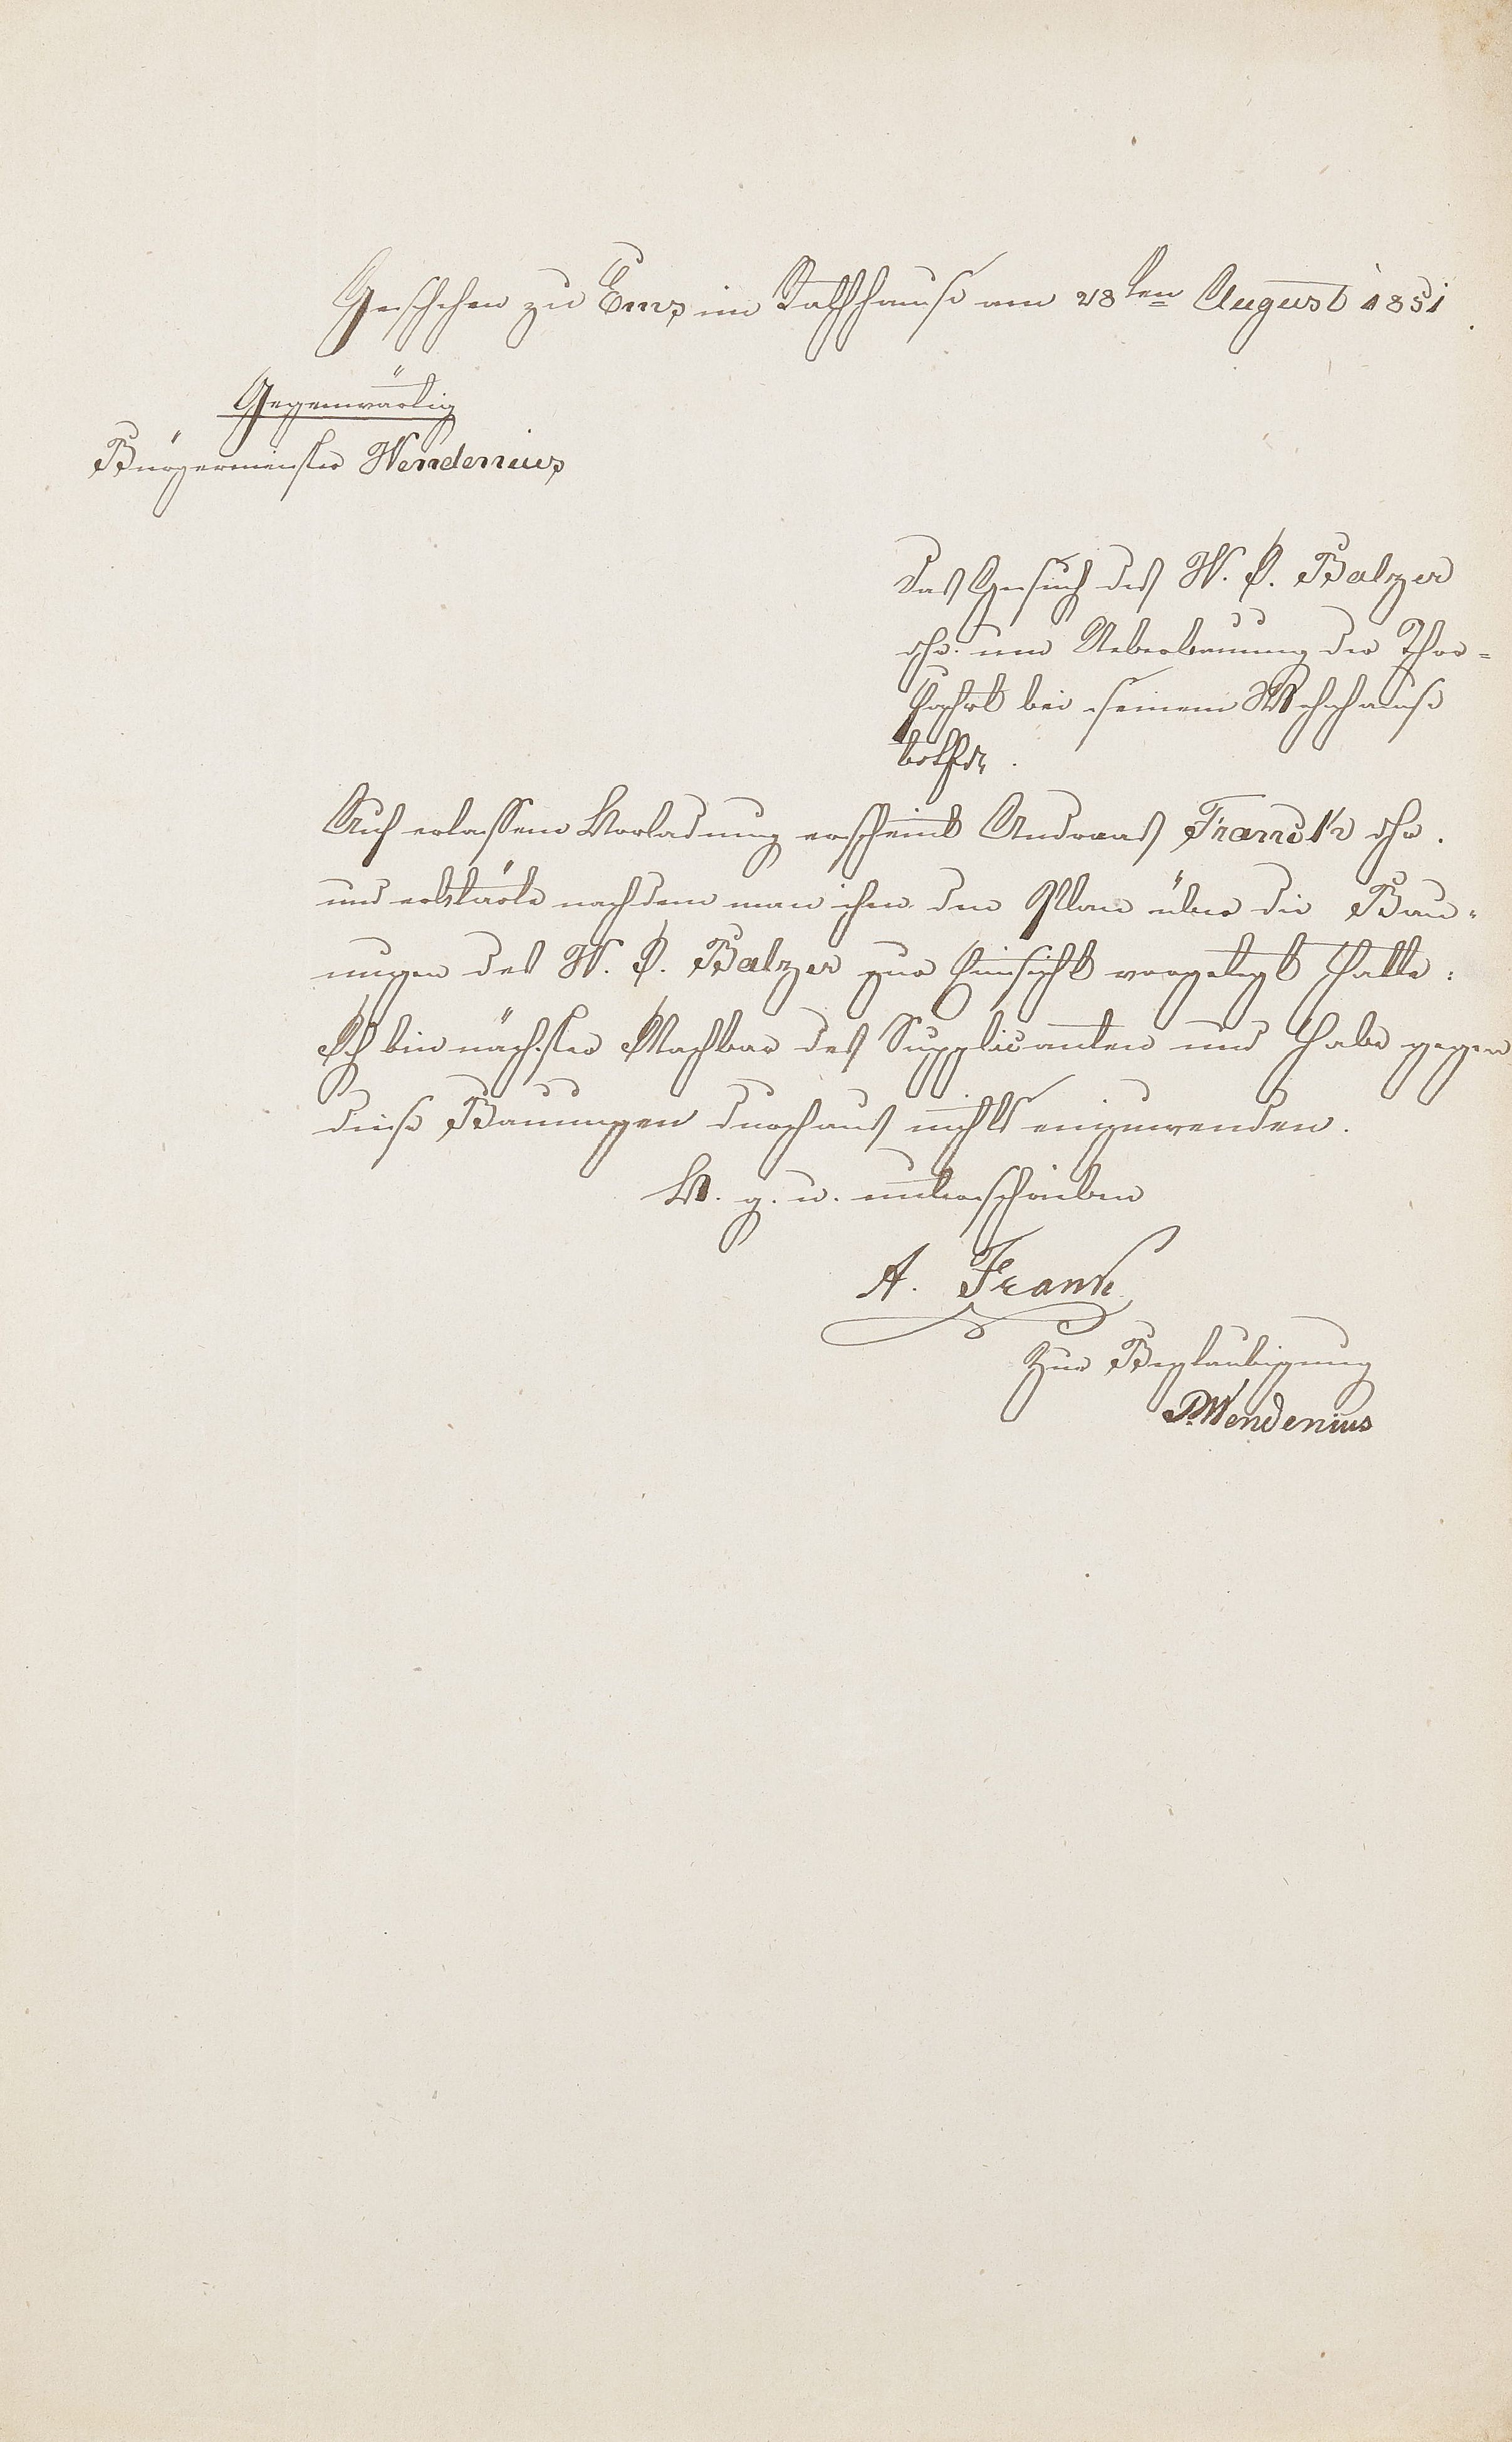 Geschehen zu Ems im Rathhause am 28ten August 1851
Gegenwärtig
Bürgermeister Wendenius
Das Gesuch des W. P. Balzer
dhr. um Ueberbauung der Thor-
fahrt bei seinem Wohnhause
betfd.
Auf erlassene Vorladung erscheint Andreas Franck dhr.
und erklärte nachdem man ihm den Plan über die Bau-
ungen des W. P. Balzer zur Einsicht vorgelegt hatte:
Ich bin nächster Nachbar des Supplicanten und habe gegen
diese Bauungen durchaus nichts einzuwenden.
V. g. u. unterschrieben
A. Frank
Zur Beglaubigung
P. Wendenius